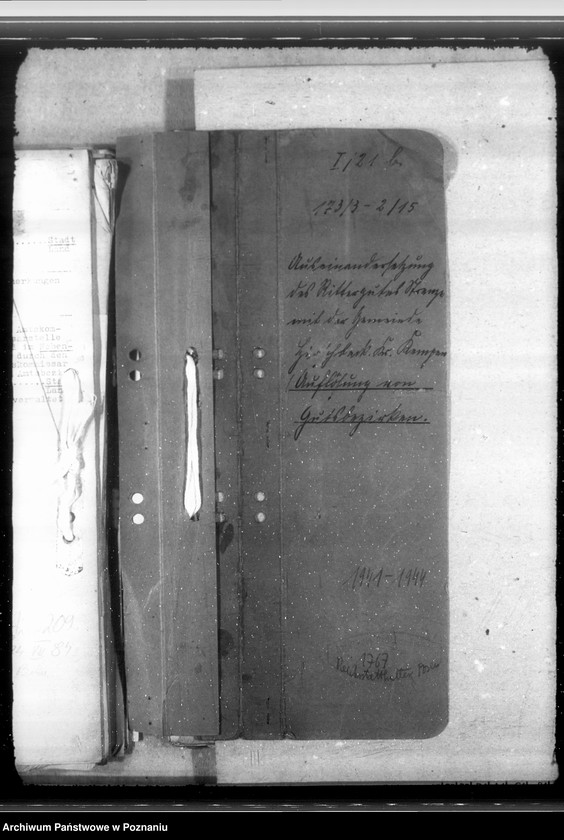 Statt
I/21 b.
173/3 - 2/15
Auseinandersetzung
des Rittergutes Strenze
mit der Gemeinde
Hirschbeck. Kr. Kempen
(Auflösung von
Gutsbezirken.
1941-1944
1767
Reichsstatthalter Posen
209
Archiwum Państwowe w Poznaniu